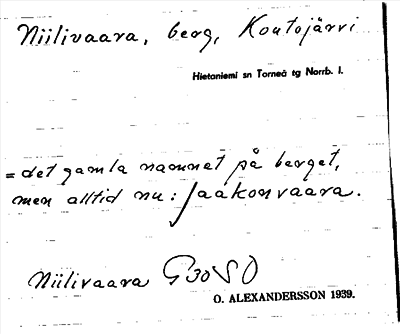 Niilivaara, berg, Koutojärvi
Hietaniemi sn Torneå tg Norrb. l.
= det gamla namnet på berget,
men alltid nu: Jaakonvaara.
Niilivaara G30 SO
O. ALEXANDERSSON 1939.